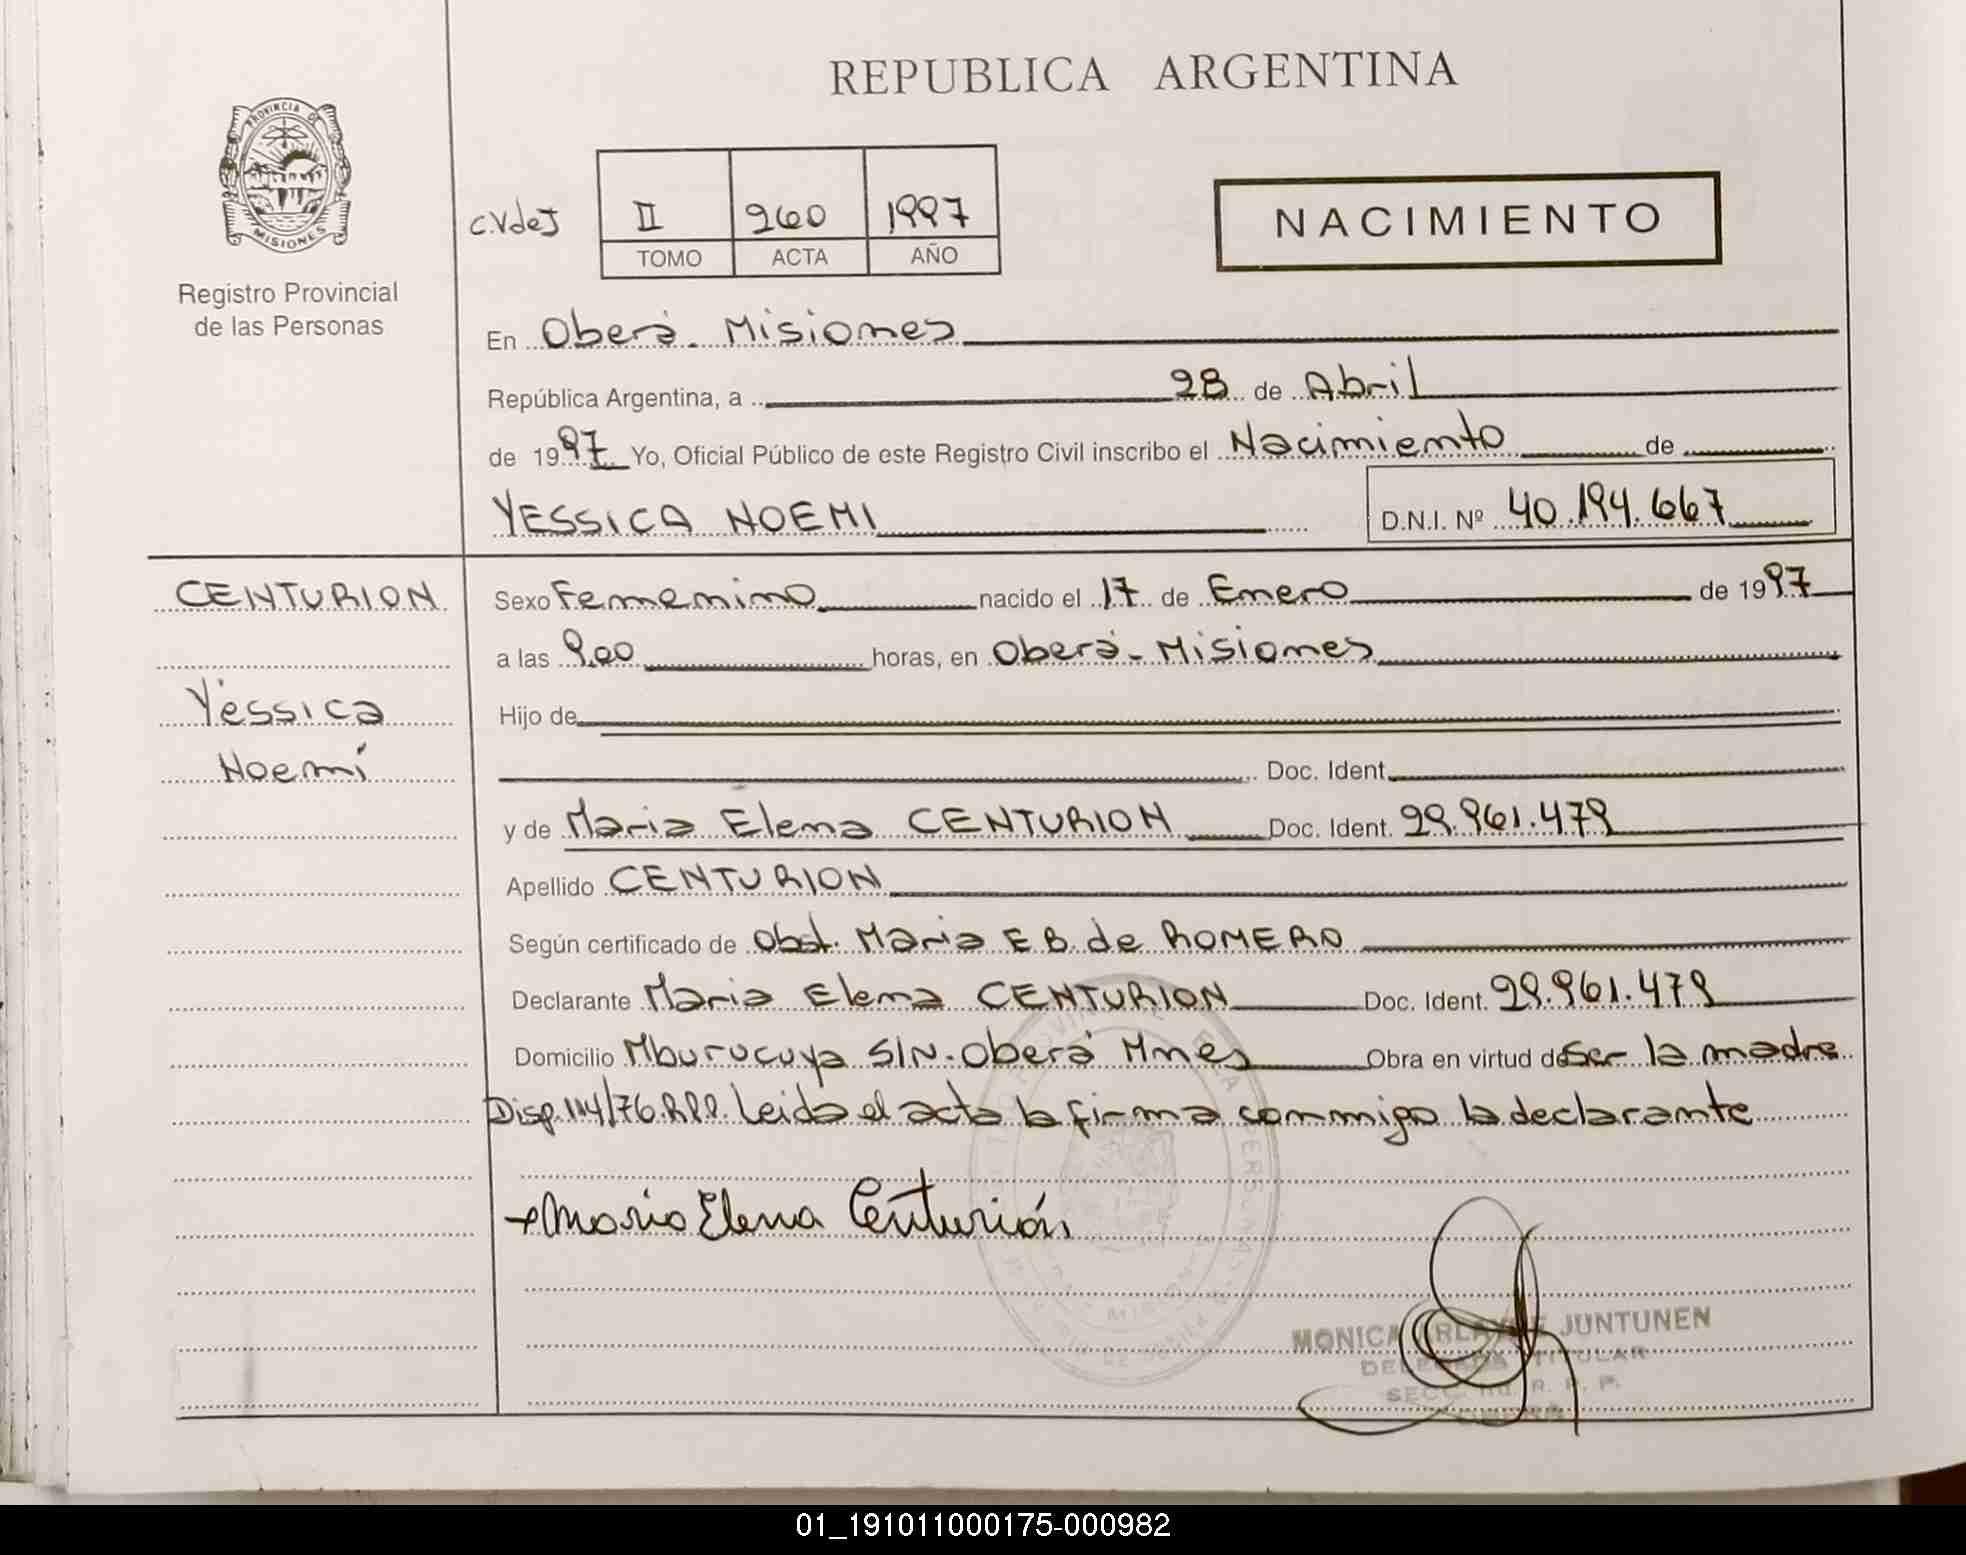 REPUBLICA ARGENTINA
PROVINCIA DE MISIONES
Registro Provincial
de las Personas
C.VdeJ
II 260 1997
TOMO ACTA AÑO
NACIMIENTO
En Oberá - Misiones
República Argentina, a 28 de Abril
de 1997 Yo, Oficial Público de este Registro Civil inscribo el Nacimiento de
YESSICA NOEMI D.N.I. Nº 40.194.667
CENTURION
Yéssica
Noemí
Sexo Femenino nacido el 17 de Enero de 1997
a las 9,00 horas, en Oberá - Misiones
Hijo de
Doc. Ident.
y de Maria Elena CENTURION Doc. Ident. 29.961.479
Apellido CENTURION
Según certificado de Obst. Maria E B. de ROMERO
Declarante Maria Elena CENTURION Doc. Ident. 29.961.479
Domicilio Mburucuya S/N - Oberá Mnes Obra en virtud de Ser la madre
Disp. 114/76.R.P.P. Leida el acta la firma conmigo la declarante
Maria Elena Centurión
MONICA JUNTUNEN
DELEGADA TITULAR
SECC. R. P. P.
OBERA
01_191011000175-000982